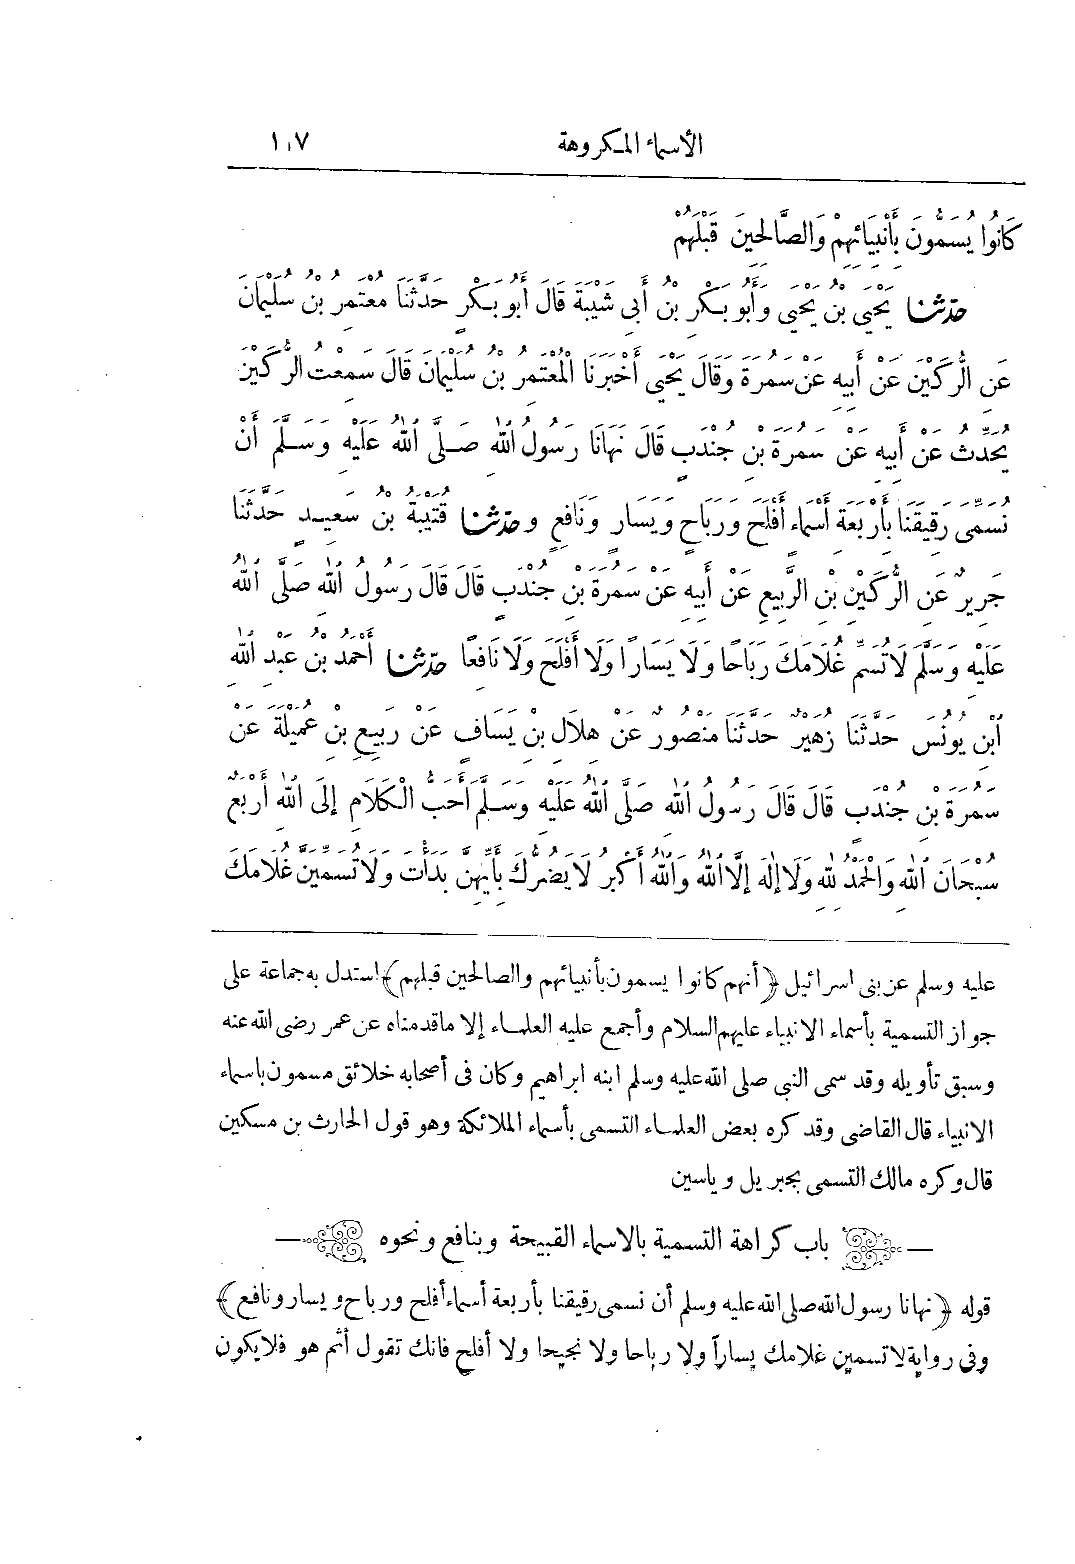 الأسماء المكروهة ١٠٧
كَانُوا يُسَمُّونَ بِأَنْبِيَائِهِمْ وَالصَّالِحِينَ قَبْلَهُمْ
حدثنا يَحْيَى بْنُ يَحْيَى وَأَبُو بَكْرِ بْنُ أَبِي شَيْبَةَ قَالَ أَبُو بَكْرٍ حَدَّثَنَا مُعْتَمِرُ بْنُ سُلَيْمَانَ
عَنِ الرُّكَيْنِ عَنْ أَبِيهِ عَنْ سَمُرَةَ وَقَالَ يَحْيَى أَخْبَرَنَا الْمُعْتَمِرُ بْنُ سُلَيْمَانَ قَالَ سَمِعْتُ الرُّكَيْنَ
يُحَدِّثُ عَنْ أَبِيهِ عَنْ سَمُرَةَ بْنِ جُنْدَبٍ قَالَ نَهَانَا رَسُولُ اللهِ صَلَّى اللهُ عَلَيْهِ وَسَلَّمَ أَنْ
نُسَمِّيَ رَقِيقَنَا بِأَرْبَعَةِ أَسْمَاءٍ أَفْلَحَ وَرَبَاحٍ وَيَسَارٍ وَنَافِعٍ وحدثنا قُتَيْبَةُ بْنُ سَعِيدٍ حَدَّثَنَا
جَرِيرٌ عَنِ الرُّكَيْنِ بْنِ الرَّبِيعِ عَنْ أَبِيهِ عَنْ سَمُرَةَ بْنِ جُنْدَبٍ قَالَ قَالَ رَسُولُ اللهِ صَلَّى اللهُ
عَلَيْهِ وَسَلَّمَ لَا تُسَمِّ غُلَامَكَ رَبَاحًا وَلَا يَسَارًا وَلَا أَفْلَحَ وَلَا نَافِعًا حدثنا أَحْمَدُ بْنُ عَبْدِ اللهِ
ابْنِ يُونُسَ حَدَّثَنَا زُهَيْرٌ حَدَّثَنَا مَنْصُورٌ عَنْ هِلَالِ بْنِ يَسَافٍ عَنْ رَبِيعِ بْنِ عُمَيْلَةَ عَنْ
سَمُرَةَ بْنِ جُنْدَبٍ قَالَ قَالَ رَسُولُ اللهِ صَلَّى اللهُ عَلَيْهِ وَسَلَّمَ أَحَبُّ الْكَلَامِ إِلَى اللهِ أَرْبَعٌ
سُبْحَانَ اللهِ وَالْحَمْدُ لِلهِ وَلَا إِلَهَ إِلَّا اللهُ وَاللهُ أَكْبَرُ لَا يَضُرُّكَ بِأَيِّهِنَّ بَدَأْتَ وَلَا تُسَمِّيَنَّ غُلَامَكَ
عليه وسلم عن بنى اسرائيل ﴿أنهم كانوا يسمون بأنبيائهم والصالحين قبلهم﴾ استدل به جماعة على
جواز التسمية بأسماء الانبياء عليهم السلام وأجمع عليه العلماء إلا ماقدمناه عن عمر رضى الله عنه
وسبق تأويله وقد سمى النبى صلى الله عليه وسلم ابنه ابراهيم وكان فى أصحابه خلائق مسمون باسماء
الانبياء قال القاضى وقد كره بعض العلماء التسمى بأسماء الملائكة وهو قول الحارث بن مسكين
قال وكره مالك التسمى بجبريل وياسين
باب كراهة التسمية بالاسماء القبيحة وبنافع ونحوه
قوله ﴿نهانا رسول الله صلى الله عليه وسلم أن نسمى رقيقنا بأربعة أسماء أفلح ورباح ويسار ونافع﴾
وفى رواية لا تسمين غلامك يساراً ولا رباحا ولا نجيحا ولا أفلح فانك تقول أثم هو فلا يكون